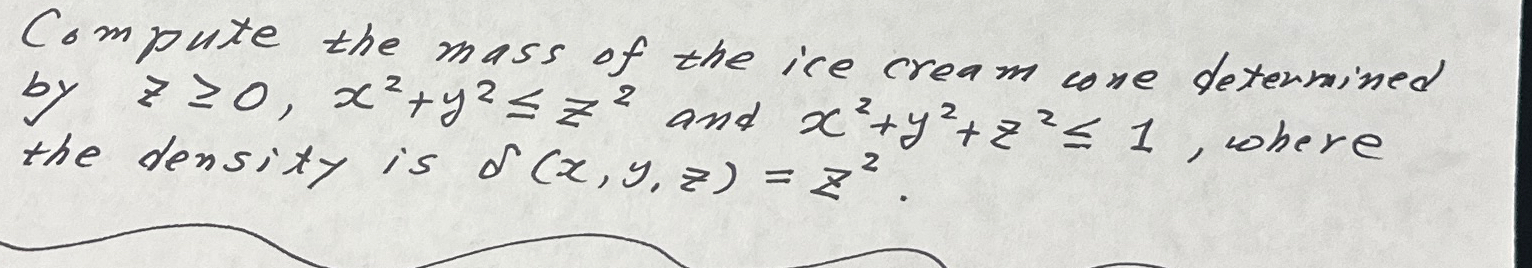 Compute the mass of the ice cream cone determined
by z ≥ 0, x² + y² ≤ z² and x² + y² + z² ≤ 1, where
the density is δ(x, y, z) = z².